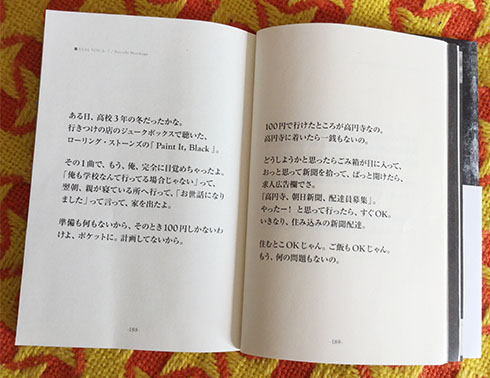 ある日、高校3年の冬だったかな。
行きつけの店のジュークボックスで聴いた、
ローリング・ストーンズの『Paint It, Black』。
その1曲で、もう、俺、完全に目覚めちゃったよ。
「俺も学校なんて行ってる場合じゃない」って、
翌朝、親が寝ている所へ行って、「お世話になり
ました」って言って、家を出たよ。
準備も何もないから、そのとき100円しかないわ
けよ、ポケットに。計画してないから。
-188-
100円で行けたところが高円寺なの。
高円寺に着いたら一銭もないの。
どうしようかと思ったらごみ箱が目に入って、
おっと思って新聞を拾って、ぱっと開けたら、
求人広告欄でさ。
「高円寺、朝日新聞、配達員募集」。
やったー!と思って行ったら、すぐOK。
いきなり、住み込みの新聞配達。
住むとこOKじゃん。ご飯もOKじゃん。
もう、何の問題もないの。
-189-